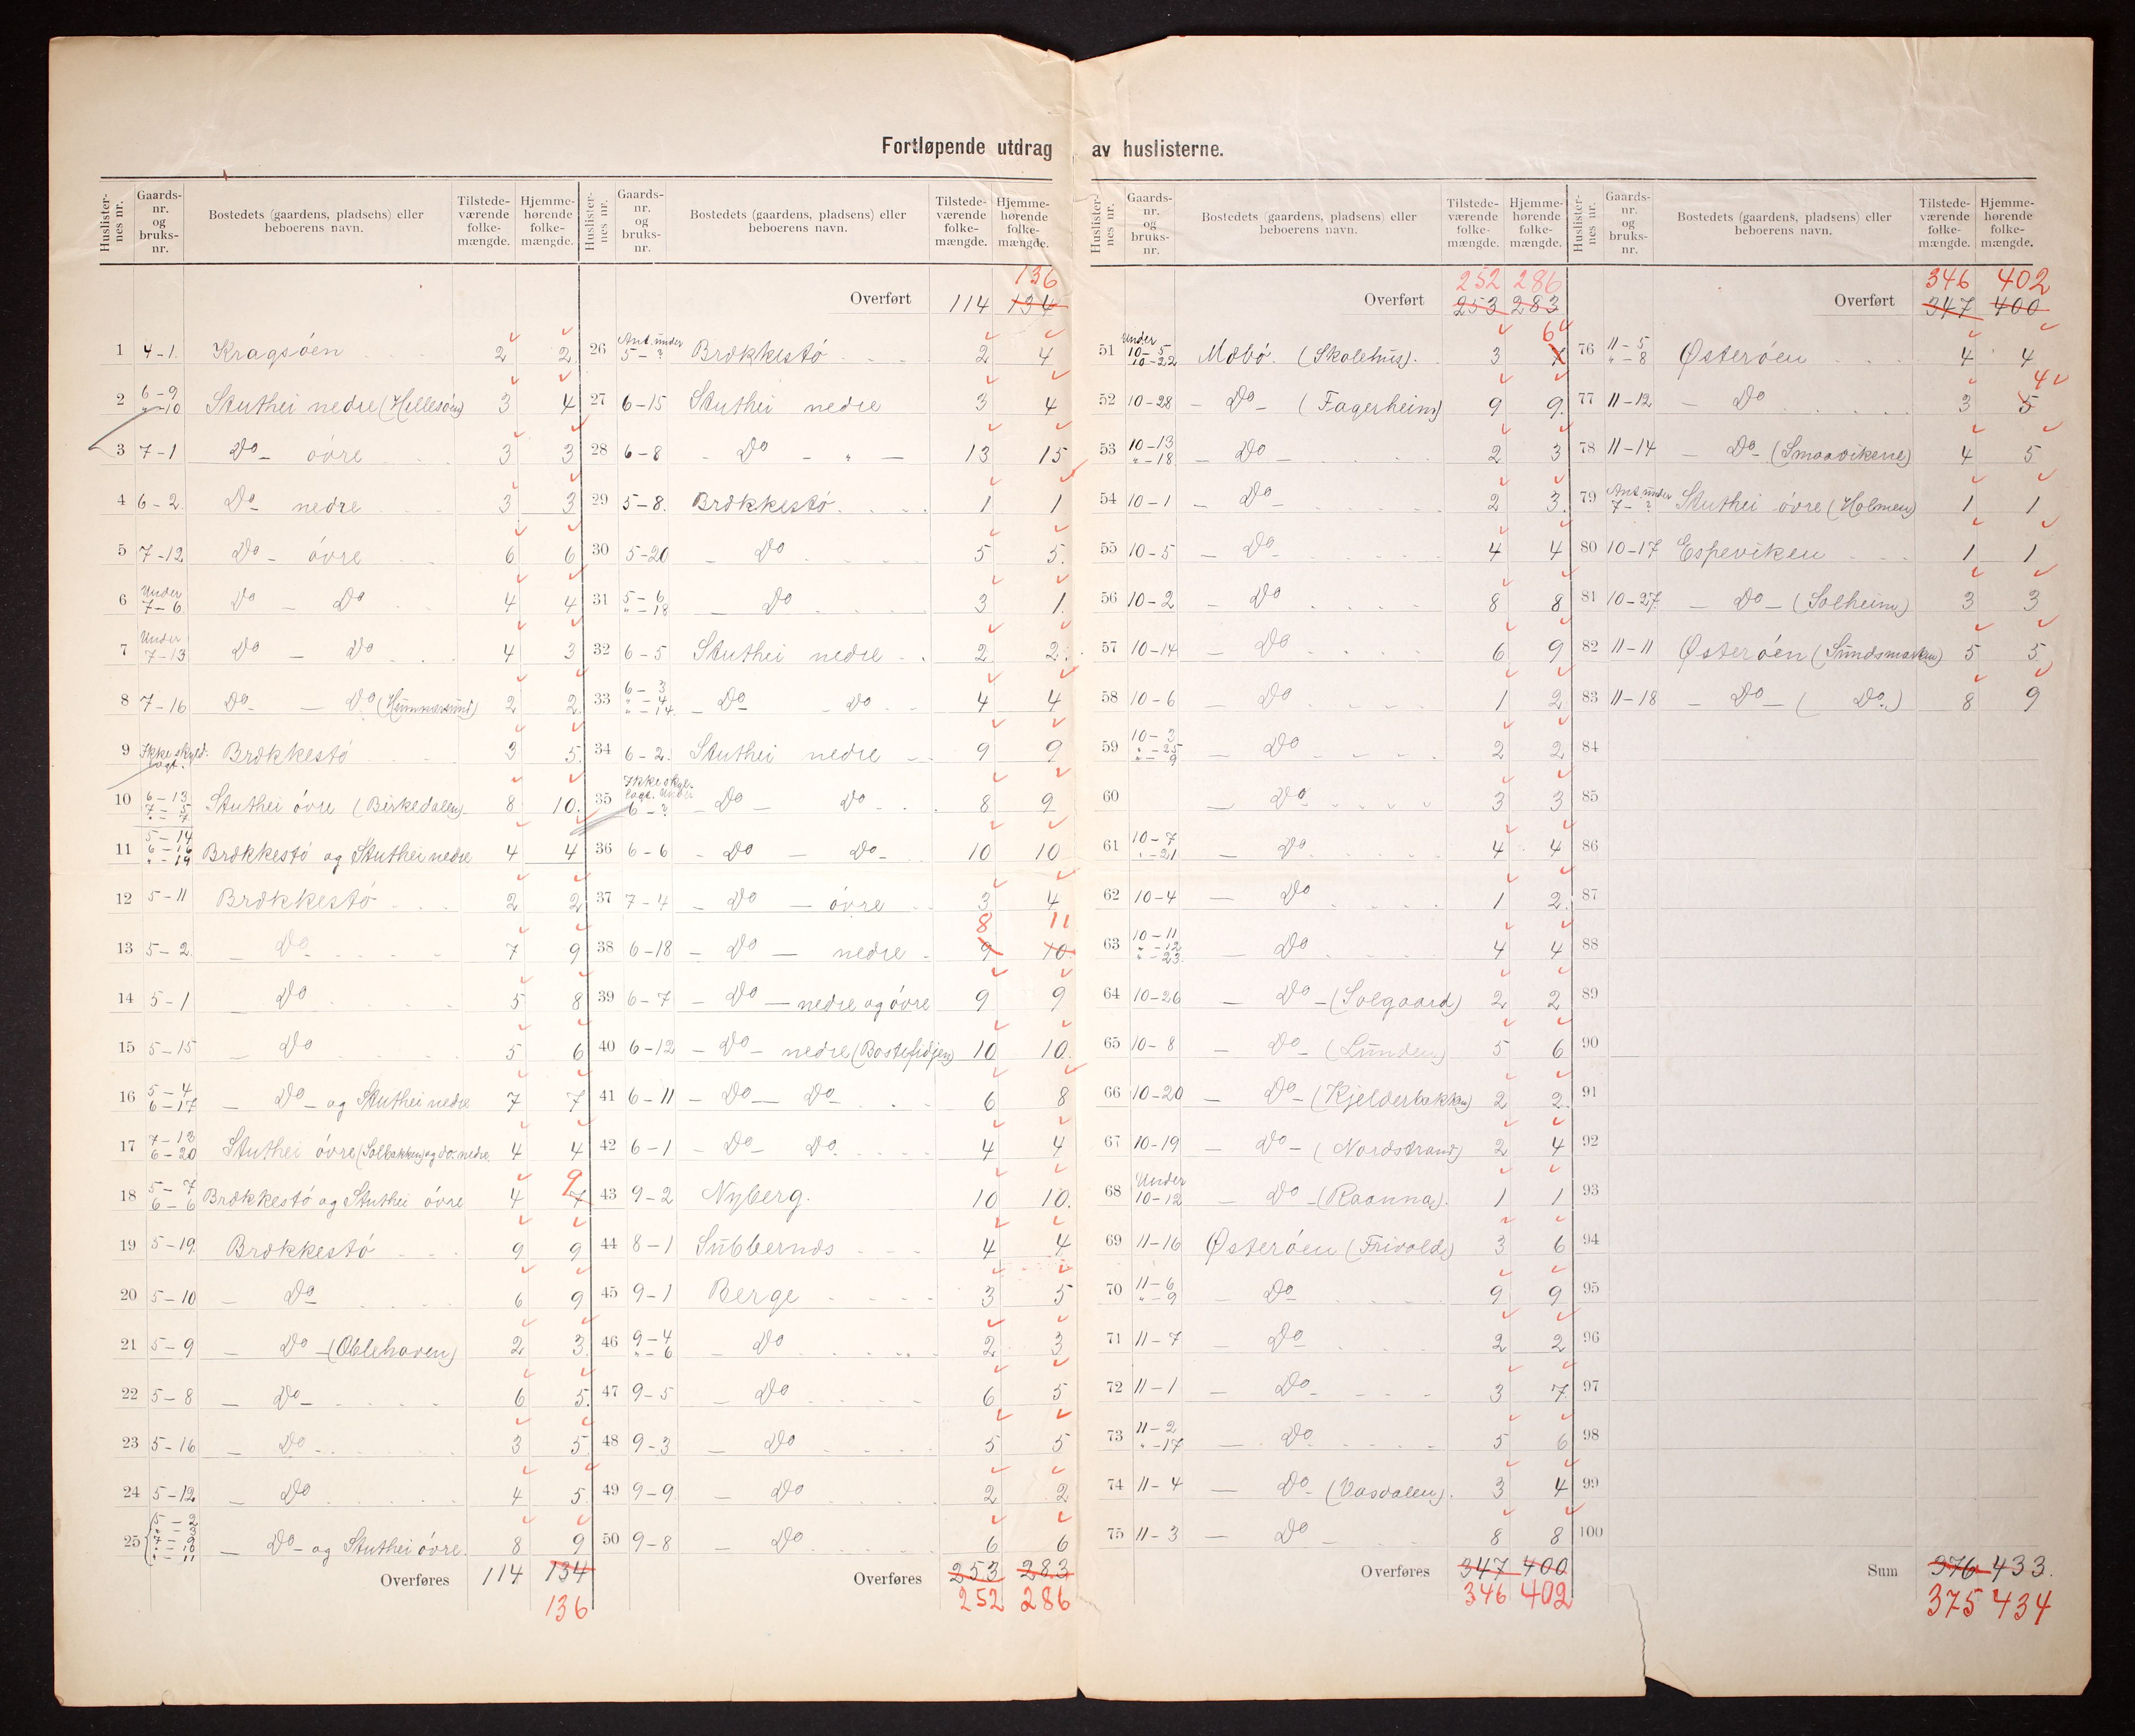 Fortløpende utdrag av huslisterne.
Huslister-nes nr. Gaards-nr. og bruks-nr. Bostedets (gaardens, pladsens) eller beboerens navn. Tilstede-værende folke-mængde. Hjemme-hørende folke-mængde.
1 4-1. Kragsöen 2 2
2 6-9 "-10 Stuthei nedre (Hellesöen) 3 4
3 7-1 Do- övre 3 3
4 6-2 Do nedre 3 3
5 7-12 Do - övre 6 6
6 Under 7-6 Do - Do 4 4
7 Under 7-13 Do - Do 4 3
8 7-16 Do- - Do (Hummersund) 2 2
9 Ikke skyld. lagt. Brækkestö 3 5
10 6-13 7-5 "-7 Stuthei övre (Birkedalen) 8 10
11 5-14 6-16 "-19 Brækkestö og Stuthei nedre 4 4
12 5-11 Brækkestö 2 2
13 5-2 - Do 7 9
14 5-1 - Do 5 8
15 5-15 - Do 5 6
16 5-4 6-17 - Do - og Stuthei nedre 7 7
17 7-18 6-20 Stuthei övre (Solbakken) og do. nedre 4 4
18 5-7 6-6 Brækkestö og Stuthei övre 4 7 9
19 5-19 Brækkestö 9 9
20 5-10 - Do 6 9
21 5-9 - Do - (Oblehaven) 2 3
22 5-8 - Do - 6 5
23 5-16 - Do - 3 5
24 5-12 - Do 4 5
25 5-2 "-3 7-9 "-10 "-11 - Do - og Stuthei övre. 8 9
Overføres 114 134
136
Huslister-nes nr. Gaards-nr. og bruks-nr. Bostedets (gaardens, pladsens) eller beboerens navn. Tilstede-værende folke-mængde. Hjemme-hørende folke-mængde.
136
Overført 114 134
26 Ant. under 5-? Brækkestö 2 4
27 6-15 Stuthei nedre 3 4
28 6-8 - Do - " - 13 15
29 5-8. Brækkestö 1 1
30 5-20 - Do 5 5
31 5-6 "-18 - Do 3 1
32 6-5 Stuthei nedre 2 2
33 6-3 "-4 "-14 - Do - Do 4 4
34 6-2. Stuthei nedre 9 9
35 Ikke skyl. lagt. Under 6-? - Do - Do 8 9
36 6-6 - Do - Do - 10 10
37 7-4 - Do - övre 3 4
38 6-18 - Do - nedre 9 10 8 11
39 6-7 - Do - nedre og övre 9 9
40 6-12 - Do - nedre (Bostefidjen) 10 10
41 6-11 - Do - Do 6 8
42 6-1 - Do - Do 4 4
43 9-2 Nyberg. 10 10
44 8-1 Subbernds 4 4
45 9-1 Berge 3 5
46 9-4 "-6 - Do 2 3
47 9-5 - Do 6 5
48 9-3 - Do 5 5
49 9-9 - Do 2 2
50 9-8 - Do 6 6
Overføres 253 283
252 286
Huslister-nes nr. Gaards-nr. og bruks-nr. Bostedets (gaardens, pladsens) eller beboerens navn. Tilstede-værende folke-mængde. Hjemme-hørende folke-mængde.
252 286
Overført 253 283
51 Under 10-5 10-22 Mæbö. (Skolehus). 3 6
52 10-28 - Do - (Fagerheim) 9 9
53 10-13 "-18 - Do - 2 3
54 10-1 - Do - 2 3
55 10-5 - Do - 4 4
56 10-2 - Do 8 8
57 10-14 - Do 6 9
58 10-6 - Do 1 2
59 10-3 "-25 "-9 - Do 2 2
60 - Do 3 3
61 10-7 "-21 - Do 4 4
62 10-4 - Do 1 2
63 10-11 "-12 "-23 - Do 4 4
64 10-26 - Do - (Solgaard) 2 2
65 10-8 - Do - (Lunden) 5 6
66 10-20 - Do - (Kjelderbakken) 2 2
67 10-19 - Do - (Nordstrand) 2 4
68 Under 10-12 - Do - (Raanna). 1 1
69 11-16 Østeröen (Frivold) 3 6
70 11-6 "-9 - Do 9 9
71 11-7 Do 2 2
72 11-1 - Do - 3 7
73 11-2 "-17 - Do 5 6
74 11-4 - Do - (Vasdalen). 3 4
75 11-3 - Do 8 8
Overføres 347 400
346 402
Huslister-nes nr. Gaards-nr. og bruks-nr. Bostedets (gaardens, pladsens) eller beboerens navn. Tilstede-værende folke-mængde. Hjemme-hørende folke-mængde.
346 402
Overført 347 400
76 11-5 "-8 Østeröen 4 4
77 11-12 - Do 3 5 4
78 11-14 - Do - (Smaavikene) 4 5
79 Ant. under 7-? Stuthei övre (Holmen) 1 1
80 10-17 Espeviken 1 1
81 10-27 - Do - (Solheim) 3 3
82 11-11 Østeröen (Sundsmarken) 5 5
83 11-18 - Do - (Do.) 8 9
84
85
86
87
88
89
90
91
92
93
94
95
96
97
98
99
100
Sum 376 433.
375 434